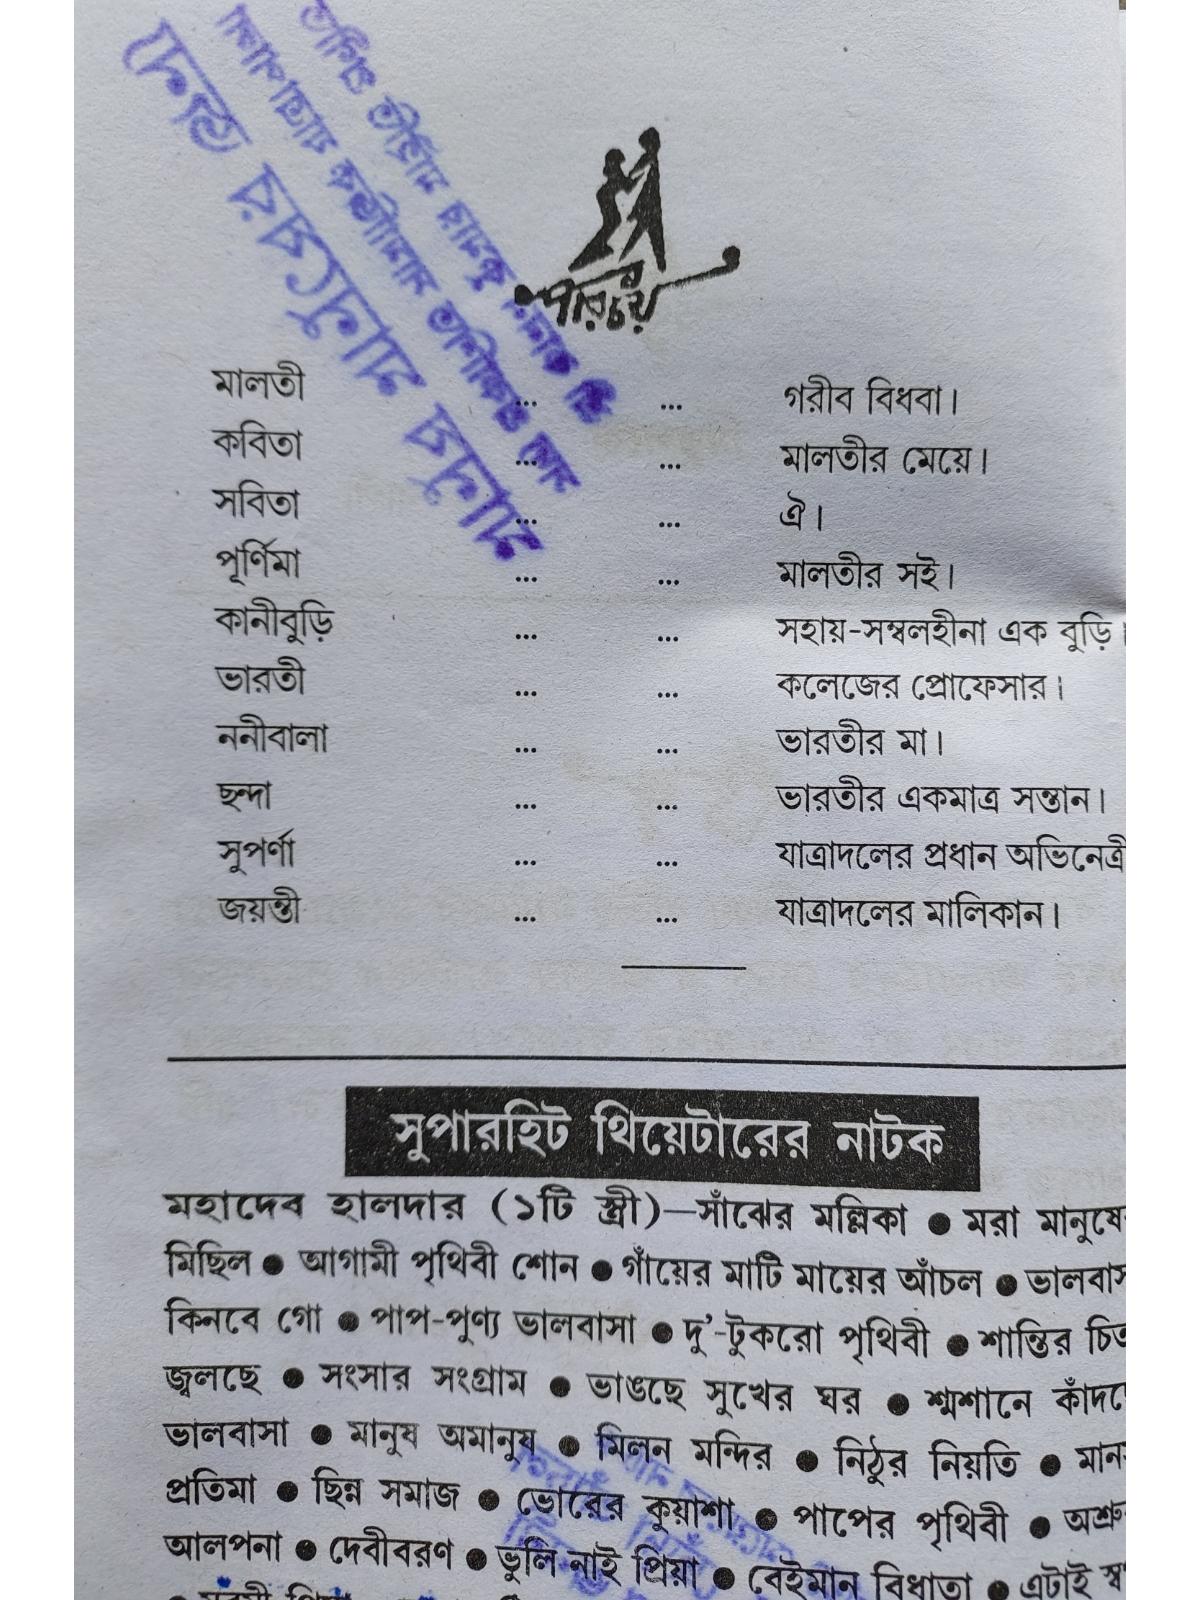 পরিচয়
মালতী ... ... গরীব বিধবা।
কবিতা ... ... মালতীর মেয়ে।
সবিতা ... ... ঐ।
পূর্ণিমা ... ... মালতীর সই।
কানীবুড়ি ... ... সহায়-সম্বলহীনা এক বুড়ি।
ভারতী ... ... কলেজের প্রোফেসার।
ননীবালা ... ... ভারতীর মা।
ছন্দা ... ... ভারতীর একমাত্র সন্তান।
সুপর্ণা ... ... যাত্রাদলের প্রধান অভিনেত্রী
জয়ন্তী ... ... যাত্রাদলের মালিকান।
সুপারহিট থিয়েটারের নাটক
মহাদেব হালদার (১টি স্ত্রী)—সাঁঝের মল্লিকা ● মরা মানুষের
মিছিল ● আগামী পৃথিবী শোন ● গাঁয়ের মাটি মায়ের আঁচল ● ভালবাসা
কিনবে গো ● পাপ-পুণ্য ভালবাসা ● দু'-টুকরো পৃথিবী ● শান্তির চিতা
জ্বলছে ● সংসার সংগ্রাম ● ভাঙছে সুখের ঘর ● শ্মশানে কাঁদছে
ভালবাসা ● মানুষ অমানুষ ● মিলন মন্দির ● নিঠুর নিয়তি ●
প্রতিমা ● ছিন্ন সমাজ ● ভোরের কুয়াশা ● পাপের পৃথিবী ● অশ্রু
আলপনা ● দেবীবরণ ● ভুলি নাই প্রিয়া ● বেইমান বিধাতা ● এটাই